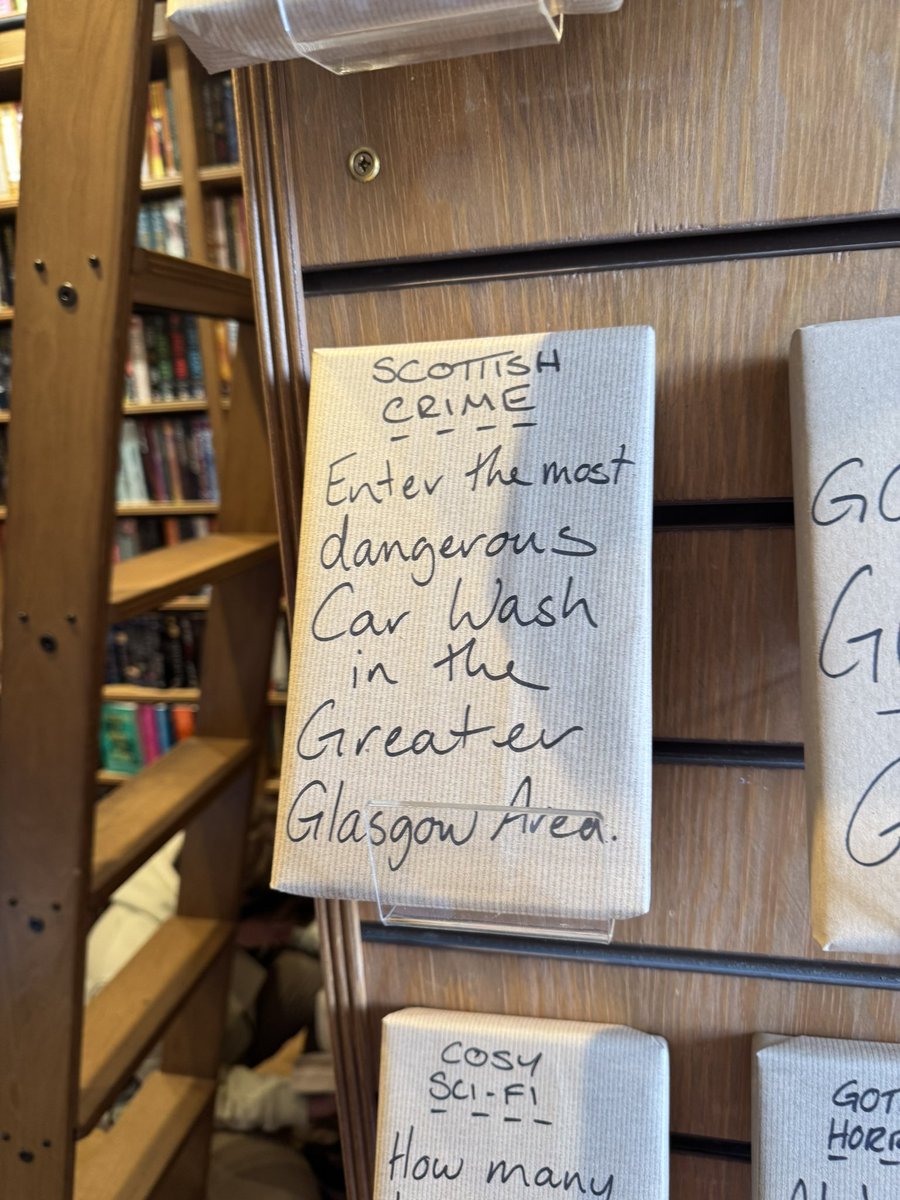 SCOTTISH
CRIME
Enter the most
dangerous
Car Wash
in the
Greater
Glasgow Area.
COSY
SCI-FI
How many